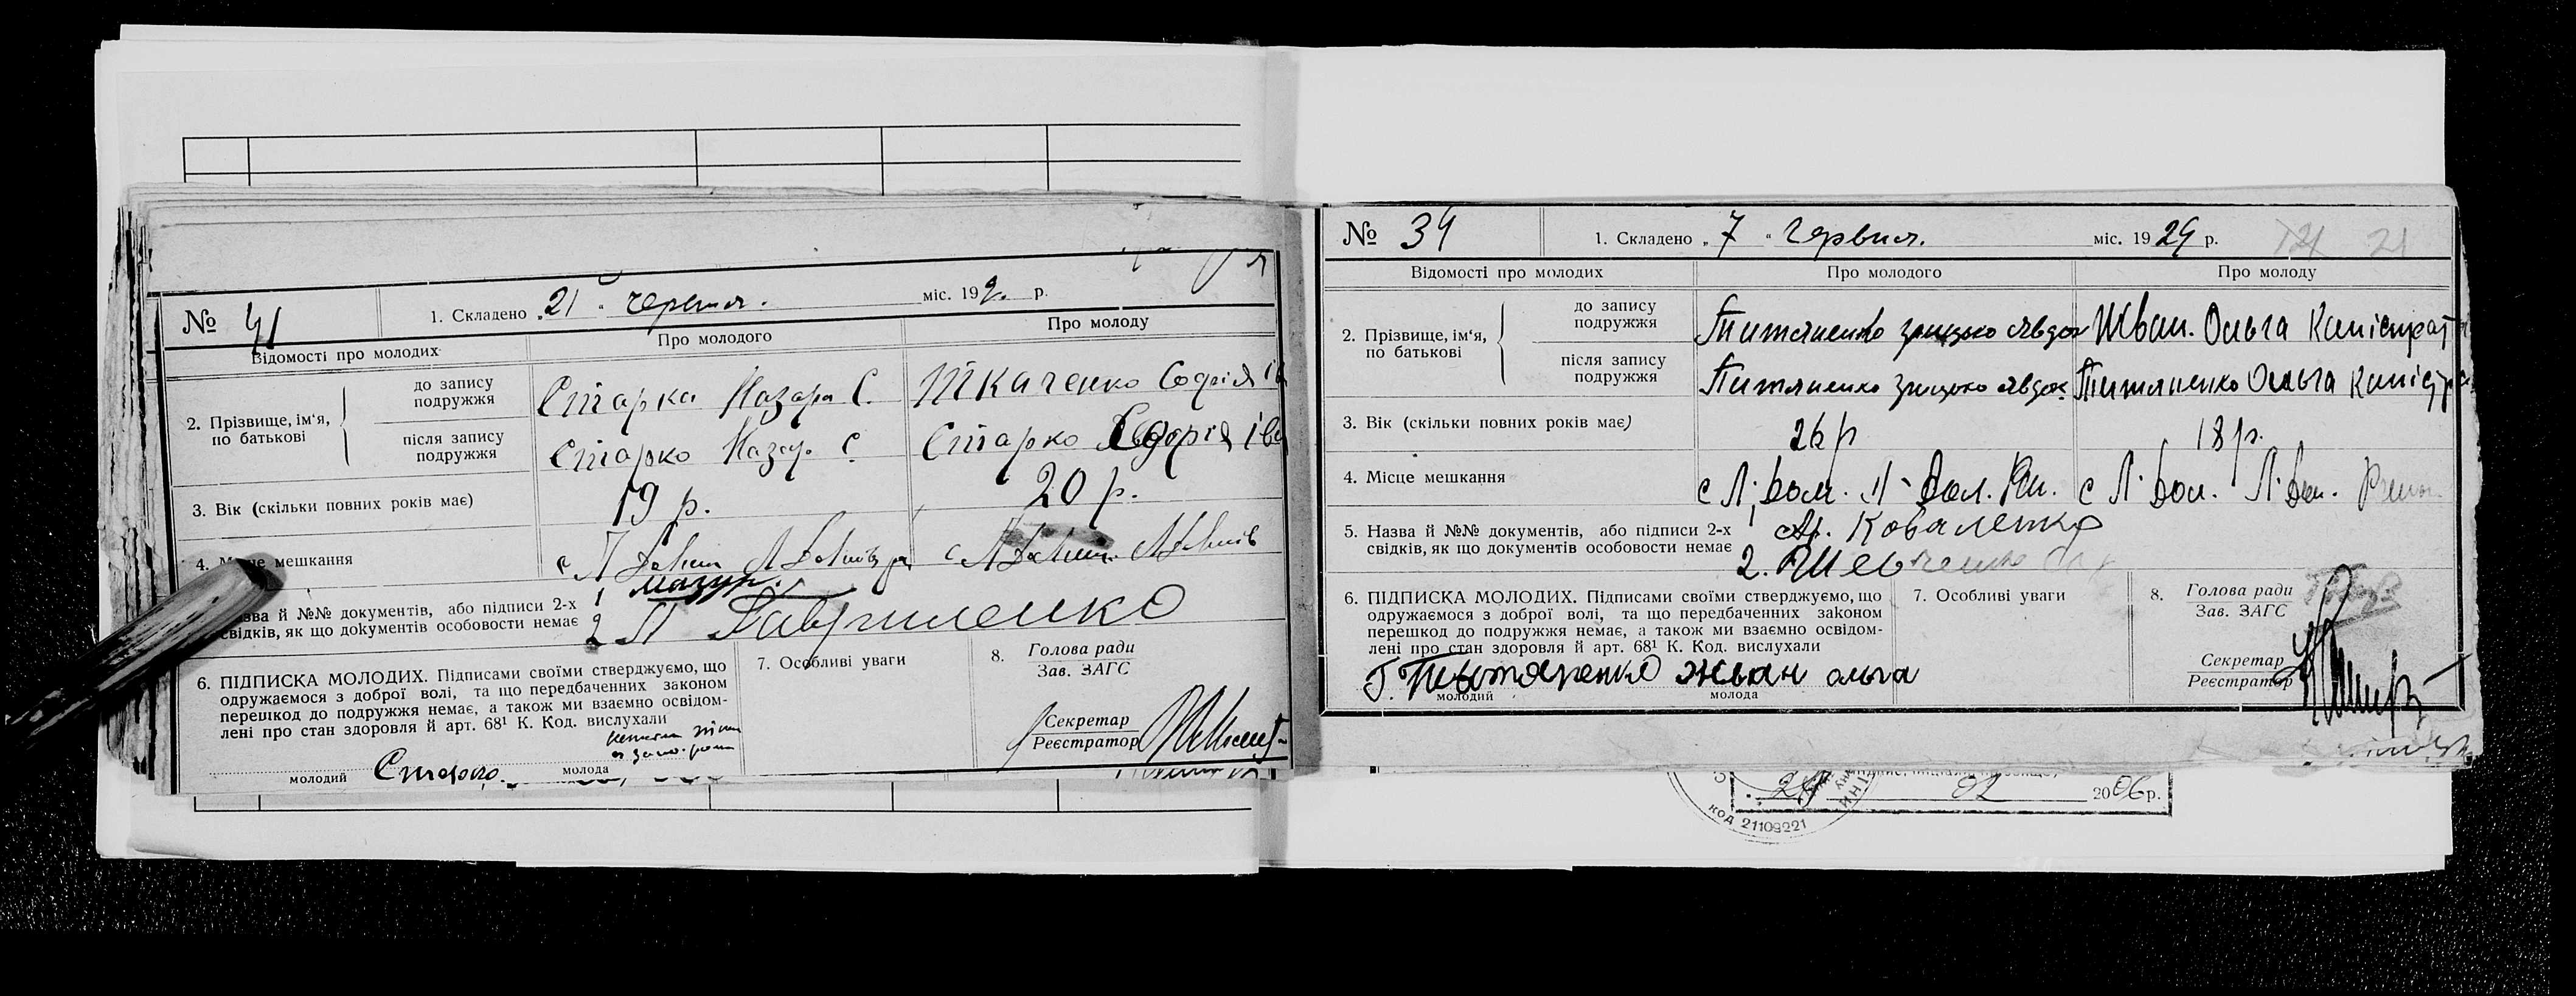 № 41
1. Складено „21“ червня. міс. 192. р.
Відомості про молодих Про молодого Про молоду
2. Прізвище, ім'я, по батькові
до запису подружжя Старка Назара С. Ткаченко Софія Ів
після запису подружжя Старко Назар. С. Старко Софія Іва
3. Вік (скільки повних років має) 19 р. 20 р.
4. мешкання с Л
й №№ документів, або підписи 2-х 1 мазур.
свідків, як що документів особовости немає 2 П Гавриленко
6. ПІДПИСКА МОЛОДИХ. Підписами своїми стверджуємо, що
одружаємося з доброї волі, та що передбаченних законом
перешкод до подружжя немає, а також ми взаємно освідом-
лені про стан здоровля й арт. 68¹ К. Код. вислухали
молодий Старко. молода
7. Особливі уваги
8. Голова ради
Зав. ЗАГС
Секретар
Реєстратор
№ 34
1. Складено „7“ Червня. міс. 1929 р. 21
Відомості про молодих Про молодого Про молоду
2. Прізвище, ім'я, по батькові
до запису подружжя Титяненко Грицько Явдок Жван. Ольга Каністрат
після запису подружжя Титяненко Грицько Явдок Титяненко Ольга Каністра
3. Вік (скільки повних років має) 26 р 18 р.
4. Місце мешкання с Л. Дол. Л. Дол. Рай. с Л. Дол. Л. Дол.
5. Назва й №№ документів, або підписи 2-х 1 Коваленко
свідків, як що документів особовости немає 2. Шевченко
6. ПІДПИСКА МОЛОДИХ. Підписами своїми стверджуємо, що
одружаємося з доброї волі, та що передбаченних законом
перешкод до подружжя немає, а також ми взаємно освідом-
лені про стан здоровля й арт. 68¹ К. Код. вислухали
Г. Титяненко жван ольга
молодий молода
7. Особливі уваги
8. Голова ради
Зав. ЗАГС
Секретар
Реєстратор
02 2006 р.
КОД 21109221